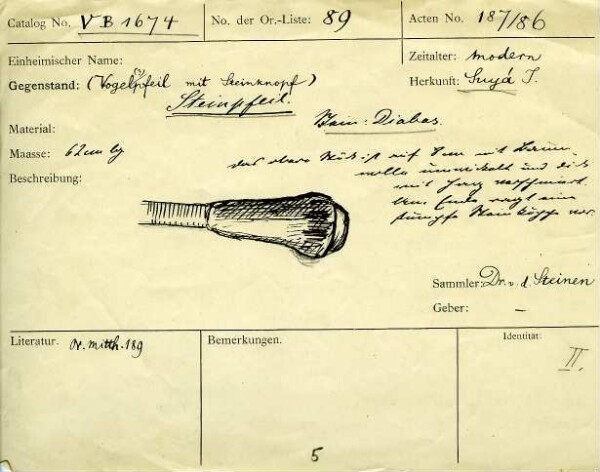 Catalog No. VB 1674 No. der Or.-Liste: 89 Acten No. 187/86
Einheimischer Name: Zeitalter: modern
Gegenstand: (Vogelpfeil mit Steinknopf) Herkunft: Suyá I.
Steinpfeil.
Material: Stein: Diabas.
Maasse: 62 cm lg
Beschreibung: das obere Stück ist auf 8 cm mit Baum-
wolle umwickelt und dick
mit Harz verschmiert.
Am Ende ragt eine
stumpfe Steinkuppe vor.
Sammler: Dr. v. d. Steinen
Geber: –
Literatur. Or. Mitth. 189 Bemerkungen. Identität:
II.
5